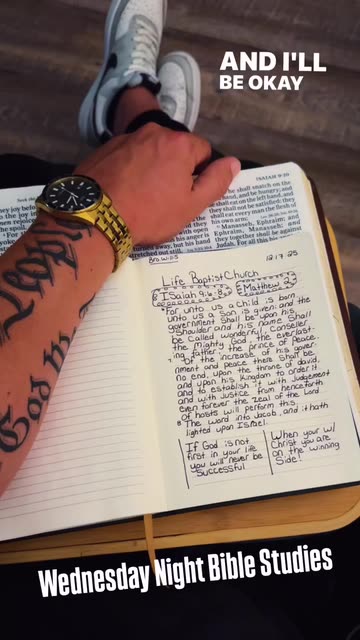 AND I'LL
BE OKAY
ISAIAH 9:20
shall snatch on the
and be hungry; and
shall eat on the left hand, and
they shall not be satisfied: they
shall eat every man the flesh of
his own arm:
Manasseh, Ephraim; and
Ephraim, Manasseh:
they together shall be against
Judah. For all this his
stretched out still.
but his hand
Bro. Will
12.17.25
Life Baptist Church
ISaiah 9:6,8
Matthew 2
"For unto us a child is born
unto us a Son is given: and the
government Shall be upon his
Shoulder and his name Shall
be Called wonderful, Conseller
the Mighty God, the everlast-
ing father, the prince of Peace.
7 Of the increase of his gover-
nment and peace there Shall be
no end, upon the throne of david,
and upon his Kingdom to order it
and to establish it with Judgement
and with Justice from henceforth
even forever the zeal of the Lord
of hosts will perform this.
8 The word into Jacob, and it hath
lighted upon Israel.
If God is not
first in your life
you will never be
Successful
When your w/
Christ you are
on the winning
Side!
God is
Wednesday Night Bible Studies